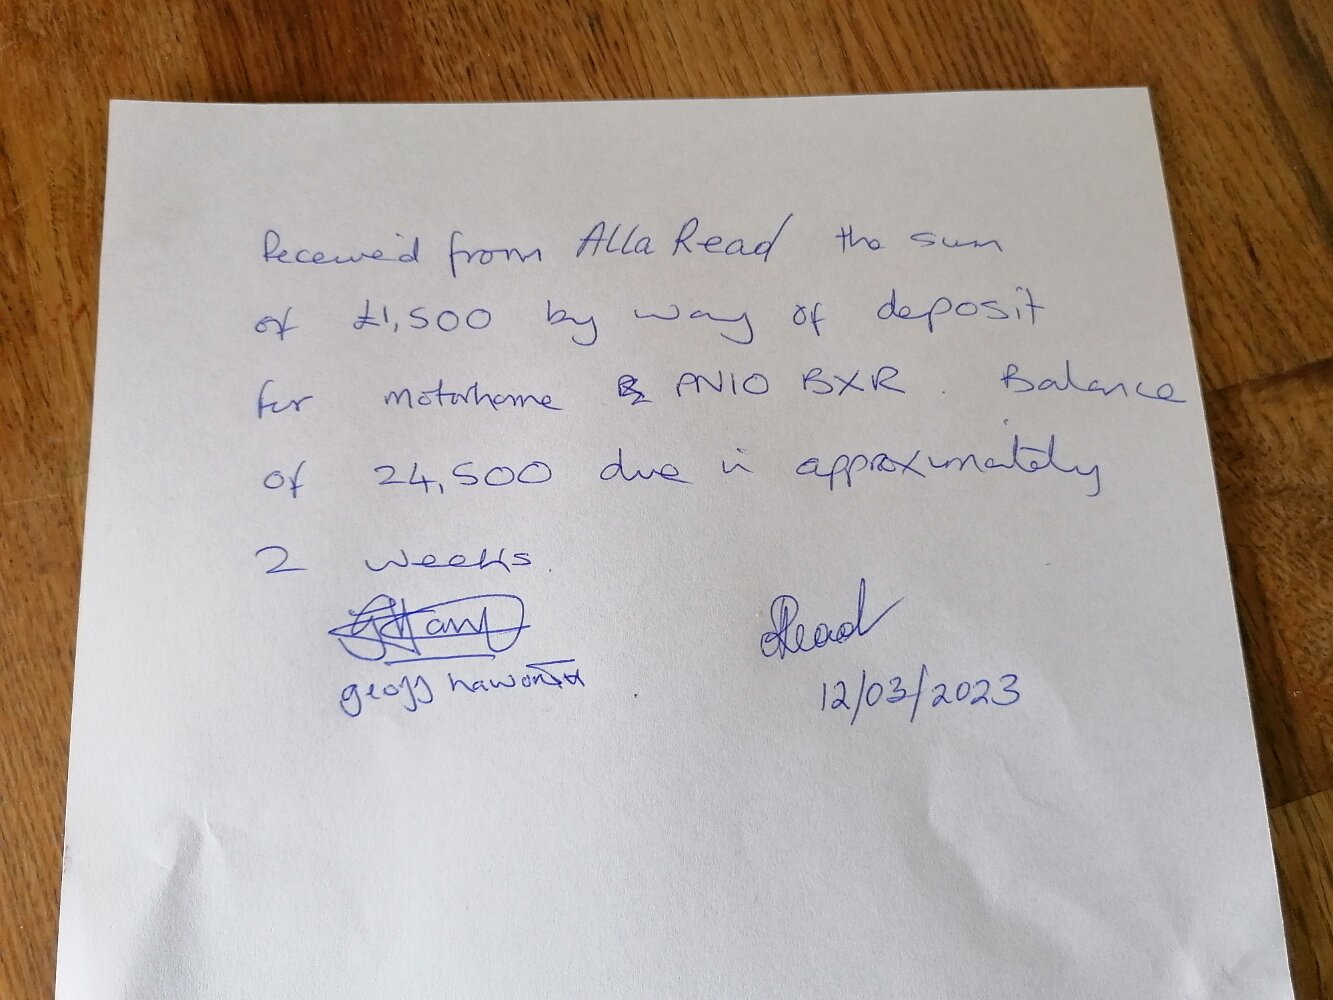 Received from Alla Read the sum
of £1,500 by way of deposit
for motorhome PN10 BXR. Balance
of 24,500 due in approximately
2 weeks.
geoff haworth
Read
12/03/2023